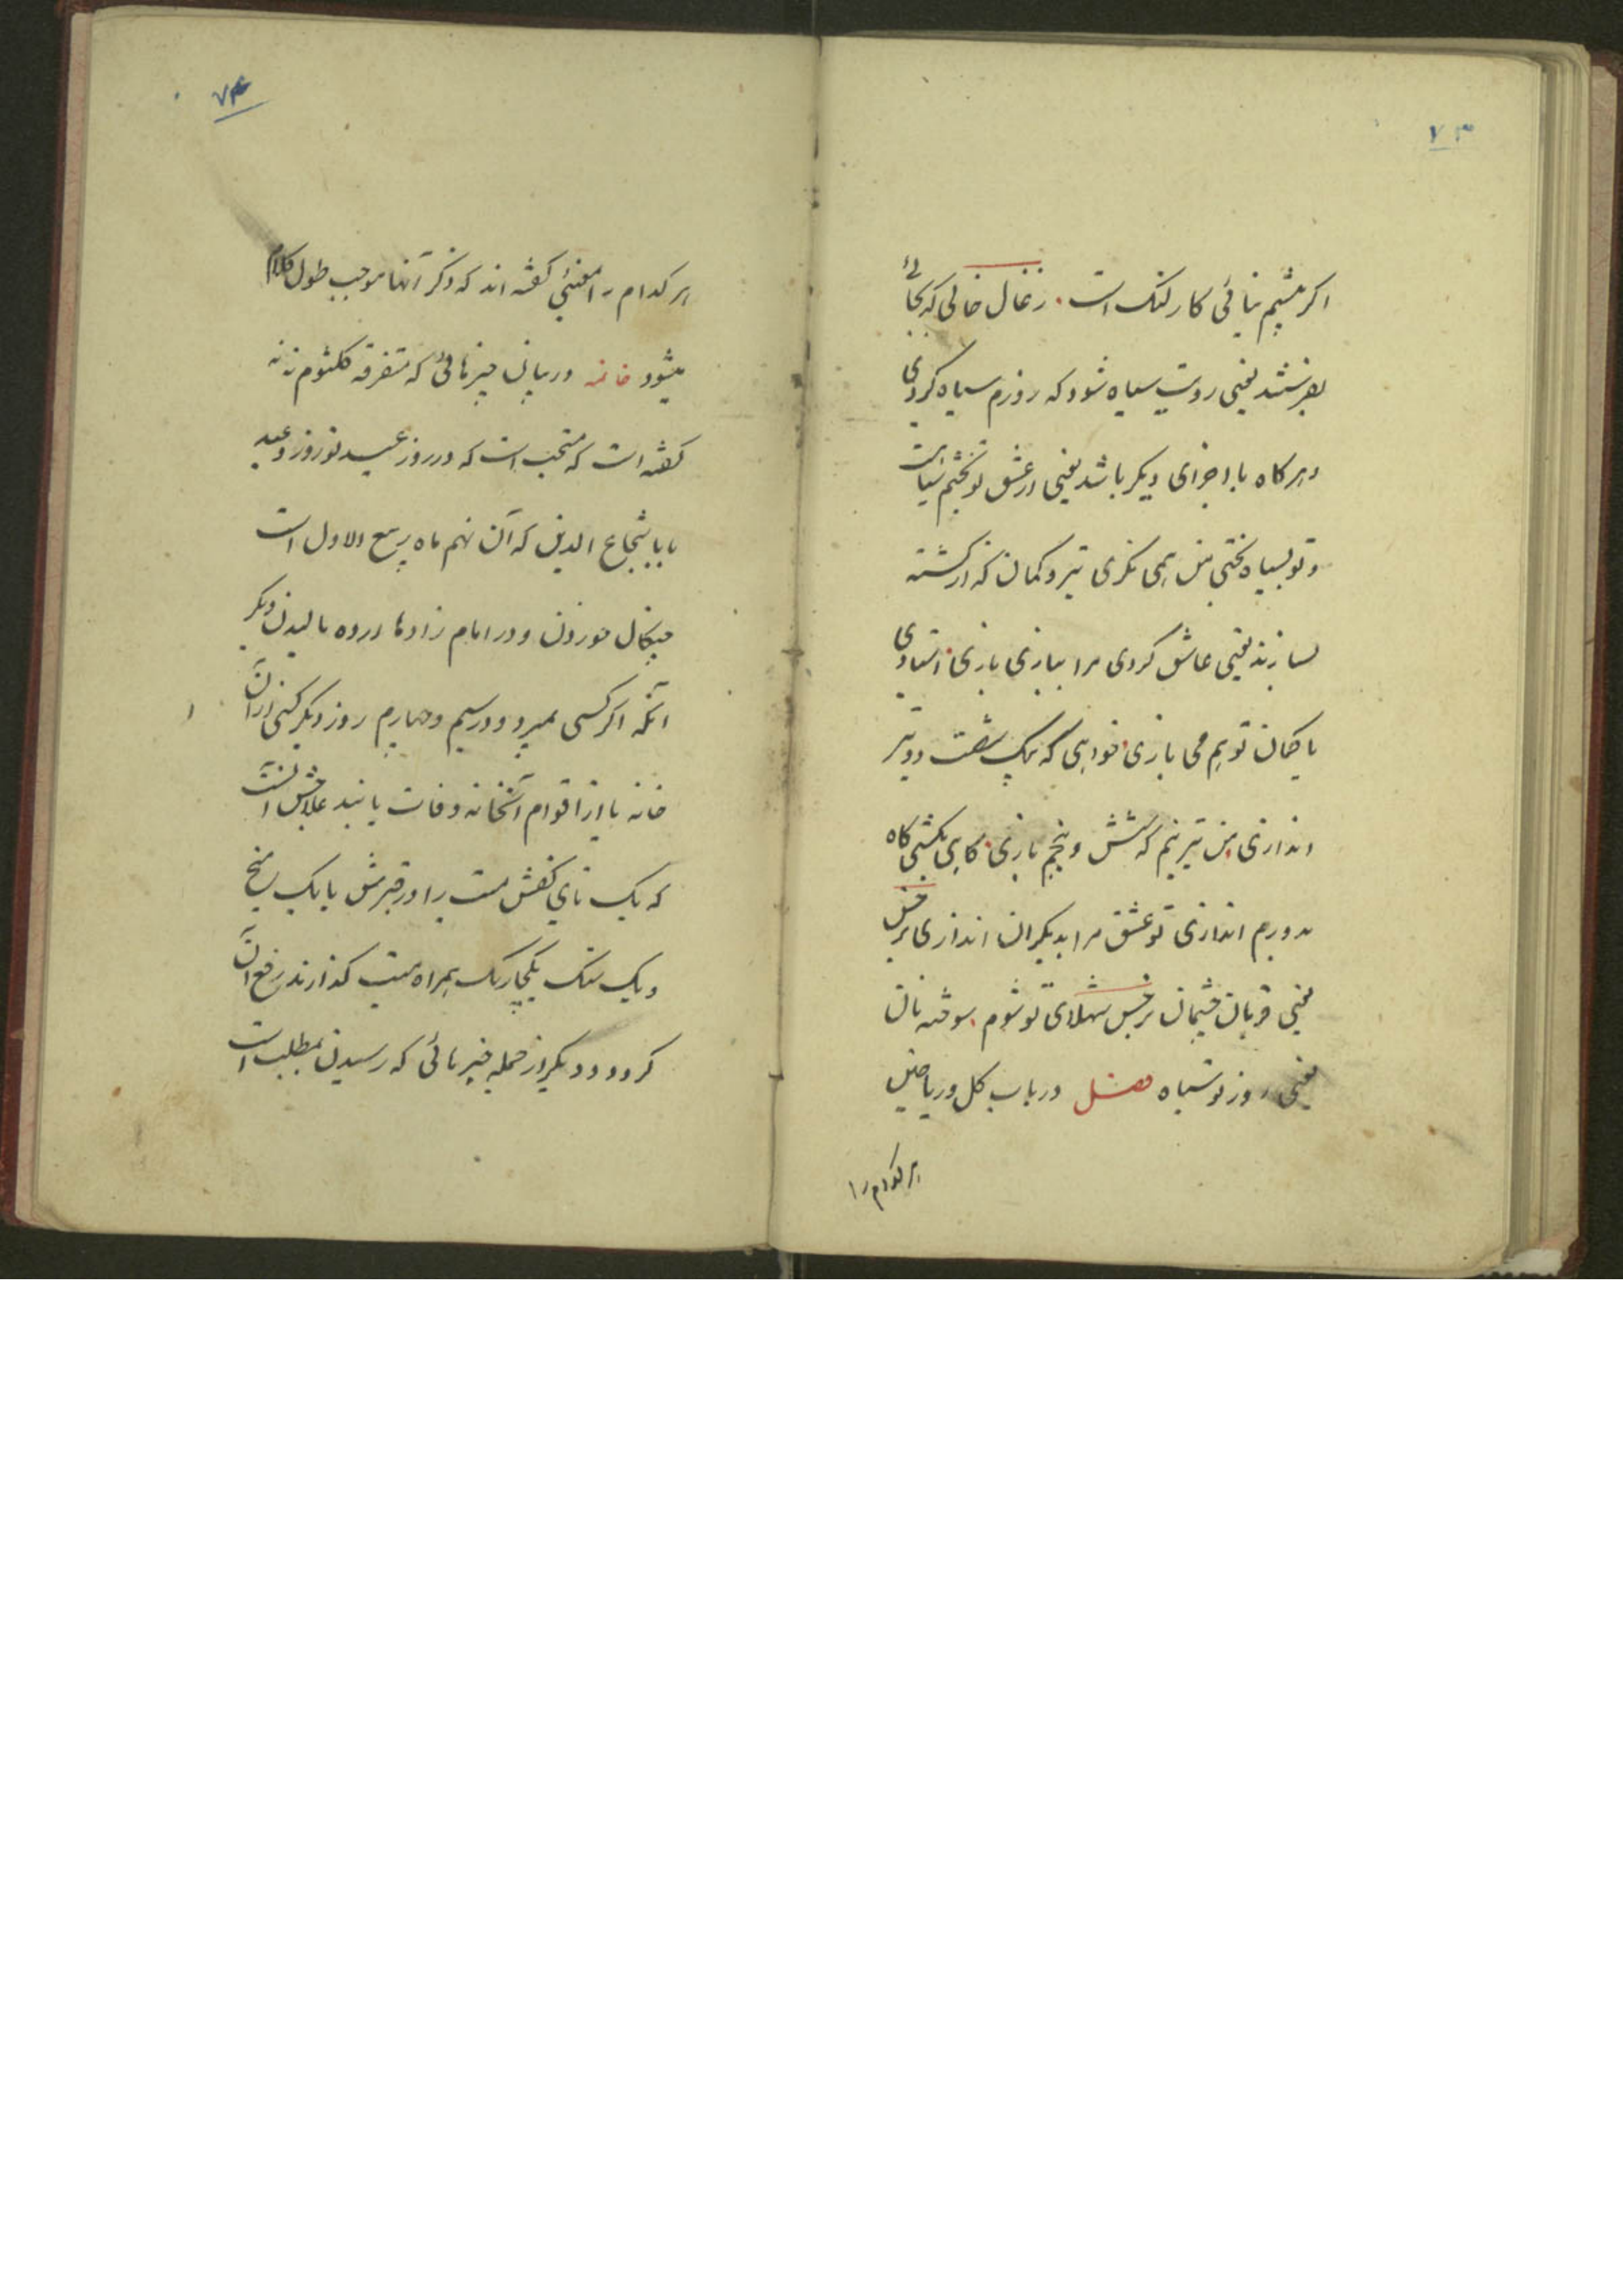 ۷۳
اکر پیشم نیائی کار لنک است زغال خالی که بجائی
بفرستند یعنی رویت سیاه شود که روزم سیاه کردی
و هرکاه با اجزای دیکر باشد یعنی از عشق تو بختم سیاه است
و تو بسیاه بختی من همی نکری تیر و کمان که از کشته
بسازند یعنی عاشق کردی مرا ببازی بازی استادی
با کمان تو هم می بازی خواهی که بیک شصت دو تیر
اندازی من تیر نیم که شش و پنجم بازی کاهی بکشی کاه
بدورم اندازی تو عشق مرا بدیکران اندازی نرجس
یعنی قربان چشمان نرجس شهلای تو شوم سوخته نان
یعنی روز تو سیاه فصل در باب کل و ریاحین
هر کدام را
۷۴
هر کدام را معنئی کفته اند که ذکر آنها موجب طول کلام
میشود خاتمه در بیان چیزهائی که متفرقه کلثوم ننه
کفته است که مستحب است که در روز عید نوروز و عید
بابا شجاع الدین که آن نهم ماه ربیع الاول است
خوردن و در امام زادها ارده مالیدن دیکر
آنکه اکر کسی بمیرد و در سیم و چهارم روز دیکر کسی از آن
خانه یا از اقوام آنخانه وفات یابند علاجش آنست
که یک تای کفش میت را در قبرش با یک میخ
و یک سنک یکچاریک همراه میت کذارند رفع آن
کردد و دیکر از جمله چیزهائی که رسیدن بمطلب است